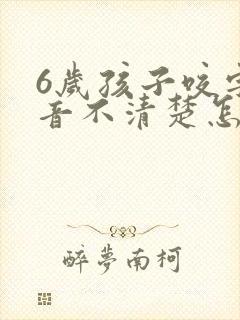 6歲孩子咬字
音不清楚怎
醉夢南柯